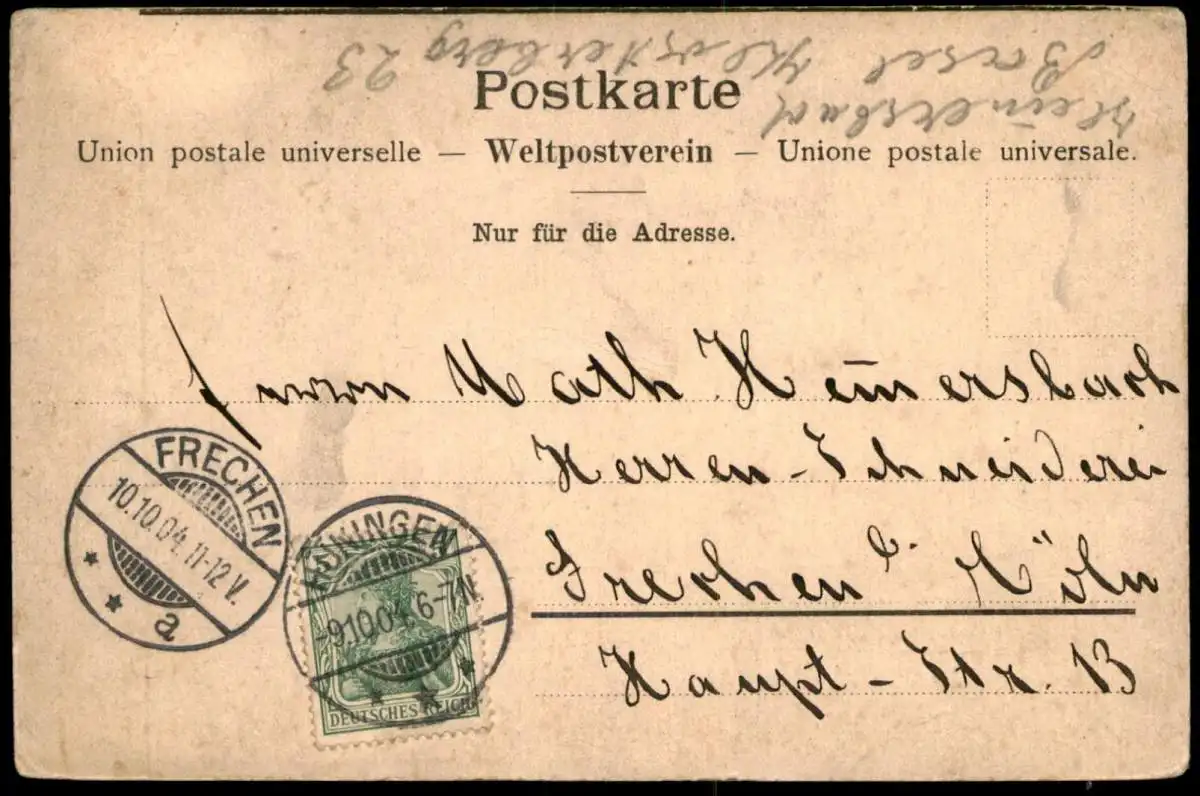 Postkarte
Union postale universelle — Weltpostverein — Unione postale universale.
Nur für die Adresse.
Herrn Math Heinersbach
Herren-Schneiderei
Frechen b. Köln
Haupt-Str. 13
FRECHEN
10.10.04. 11-12 V.
a
HÜNINGEN
-9.10.04. 6-7 N.
DEUTSCHES REICH
Heinersbach
Basel Klosterberg 23